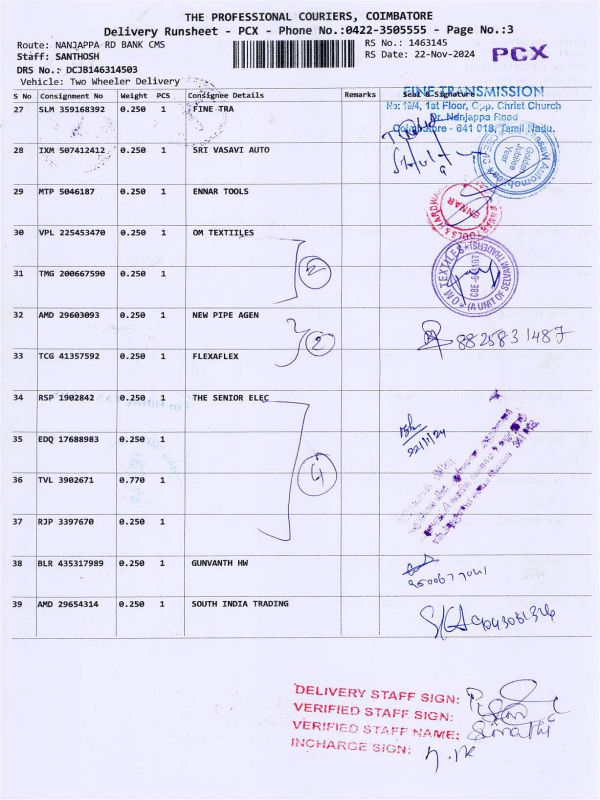 THE PROFESSIONAL COURIERS, COIMBATORE
Delivery Runsheet - PCX - Phone No.:0422-3505555 - Page No.:3
Route: NANJAPPA RD BANK CMS RS No.: 1463145
Staff: SANTHOSH RS Date: 22-Nov-2024 PCX
DRS No.: DCJB146314503
Vehicle: Two Wheeler Delivery
S No Consignment No Weight PCS Consignee Details Remarks Seal & Signature
FINE TRANSMISSION
27 SLM 359168392 0.250 1 FINE TRA
No: 19/4, 1st Floor, Opp. Christ Church
Dr. Nanjappa Road
Coimbatore - 641 018, Tamil Nadu.
28 IXM 507412412 0.250 1 SRI VASAVI AUTO
Golden Jubilee Year
29 MTP 5046187 0.250 1 ENNAR TOOLS
ENNAR
TOOLS & HARDWARE
30 VPL 225453470 0.250 1 OM TEXTIILES
2
OM TEXTILES
(A UNIT OF SELVAM TRADERS)
31 TMG 200667590 0.250 1
32 AMD 29603093 0.250 1 NEW PIPE AGEN
2
8825831487
33 TCG 41357592 0.250 1 FLEXAFLEX
34 RSP 1902842 0.250 1 THE SENIOR ELEC
22/11/24
35 EDQ 17688983 0.250 1
36 TVL 3902671 0.770 1
4
37 RJP 3397670 0.250 1
38 BLR 435317989 0.250 1 GUNVANTH HW
39 AMD 29654314 0.250 1 SOUTH INDIA TRADING
DELIVERY STAFF SIGN:
VERIFIED STAFF SIGN:
VERIFIED STAFF NAME:
INCHARGE SIGN: